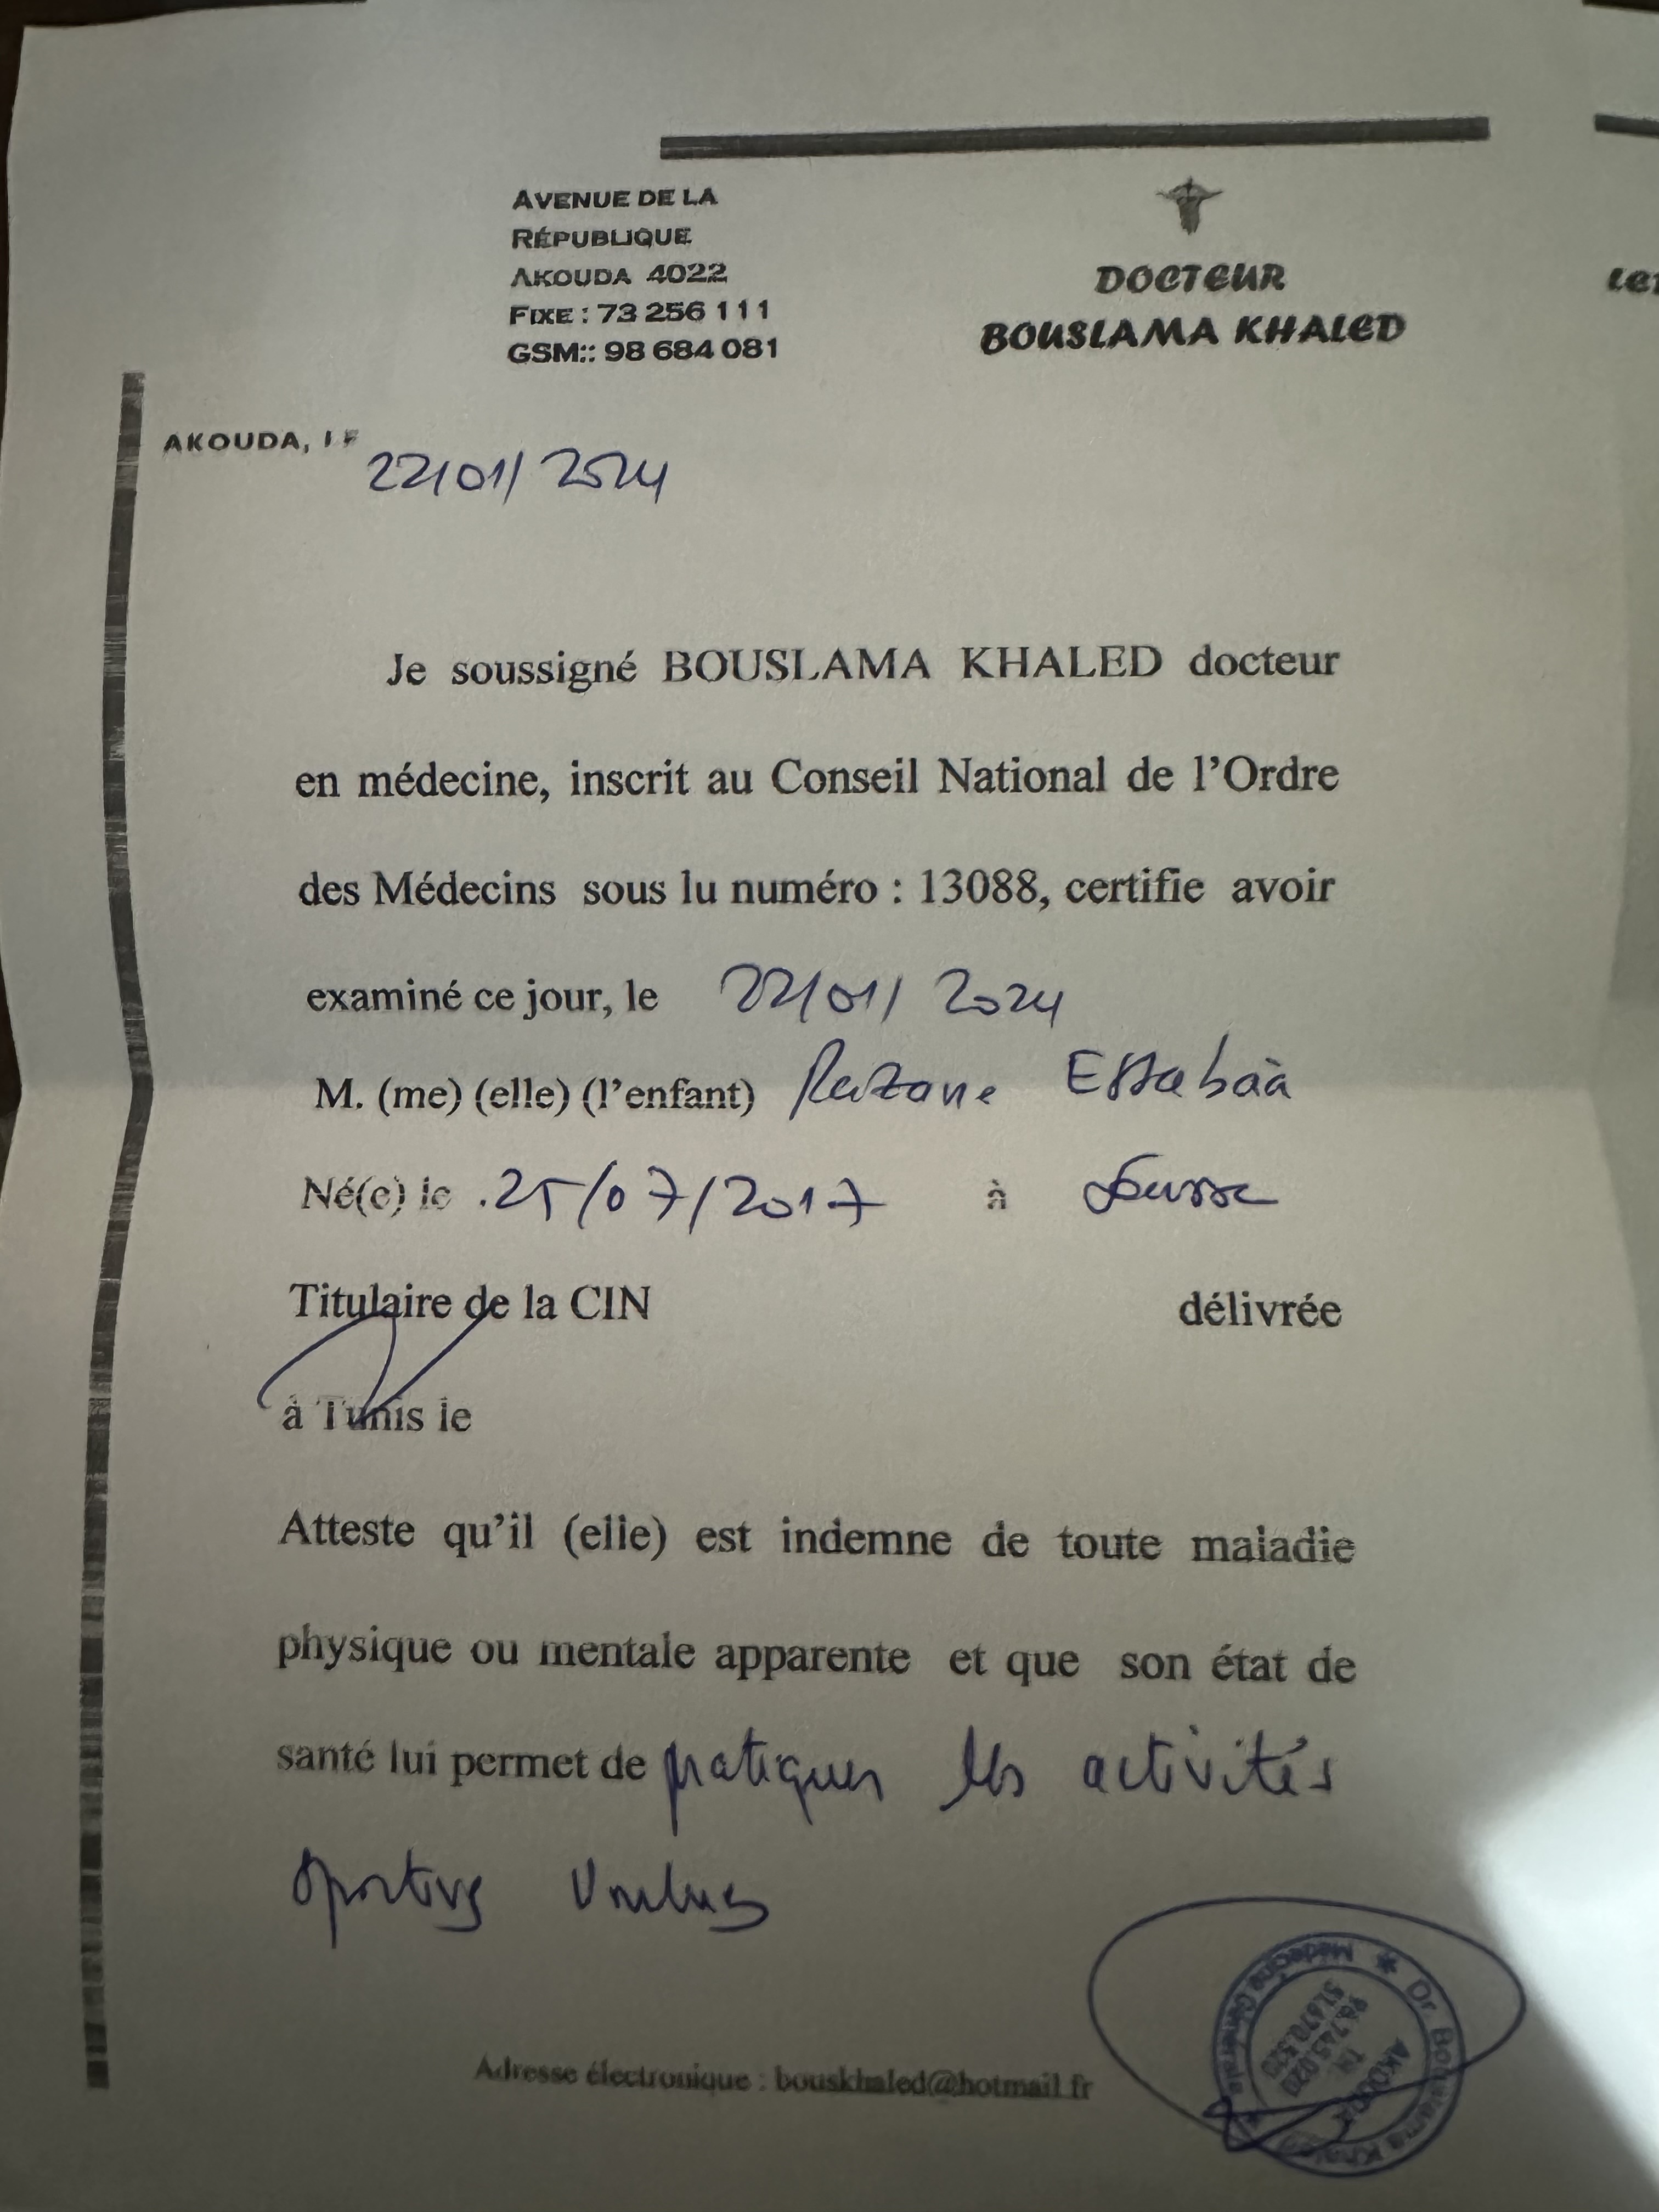 AVENUE DE LA
RÉPUBLIQUE
AKOUDA 4022
FIXE : 73 256 111
GSM:: 98 684 081
DOCTEUR
BOUSLAMA KHALED
AKOUDA, LE
22/01/2024
Je soussigné BOUSLAMA KHALED docteur
en médecine, inscrit au Conseil National de l’Ordre
des Médecins sous lu numéro : 13088, certifie avoir
examiné ce jour, le 22/01/2024
M. (me) (elle) (l’enfant) Razane Essabaà
Né(e) le .25/07/2017 à Sousse
Titulaire de la CIN délivrée
à Tunis le
Atteste qu’il (elle) est indemne de toute maladie
physique ou mentale apparente et que son état de
santé lui permet de pratiquer les activités
sportives voulues
Adresse électronique : bouskhaled@hotmail.fr
Dr. Bouslama Khaled
Médecine Générale
AKOUDA